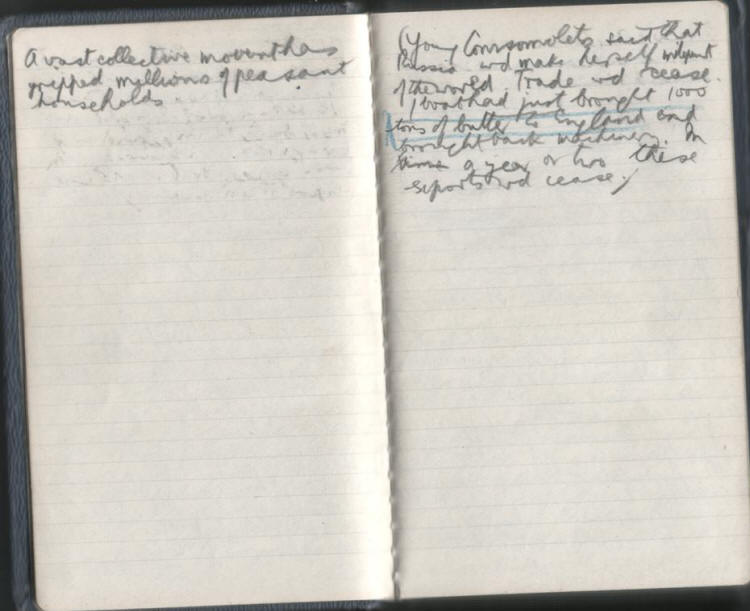 A vast collective movemt has
gripped myllions of peasant
households
(Young Comsomolets said that
Russia wd make herself indepent
of the world. Trade wd cease.
1 boat had just brought 1000
tons of butter to England and
brought back machinery. In
time a year or two these
exports wd cease.)